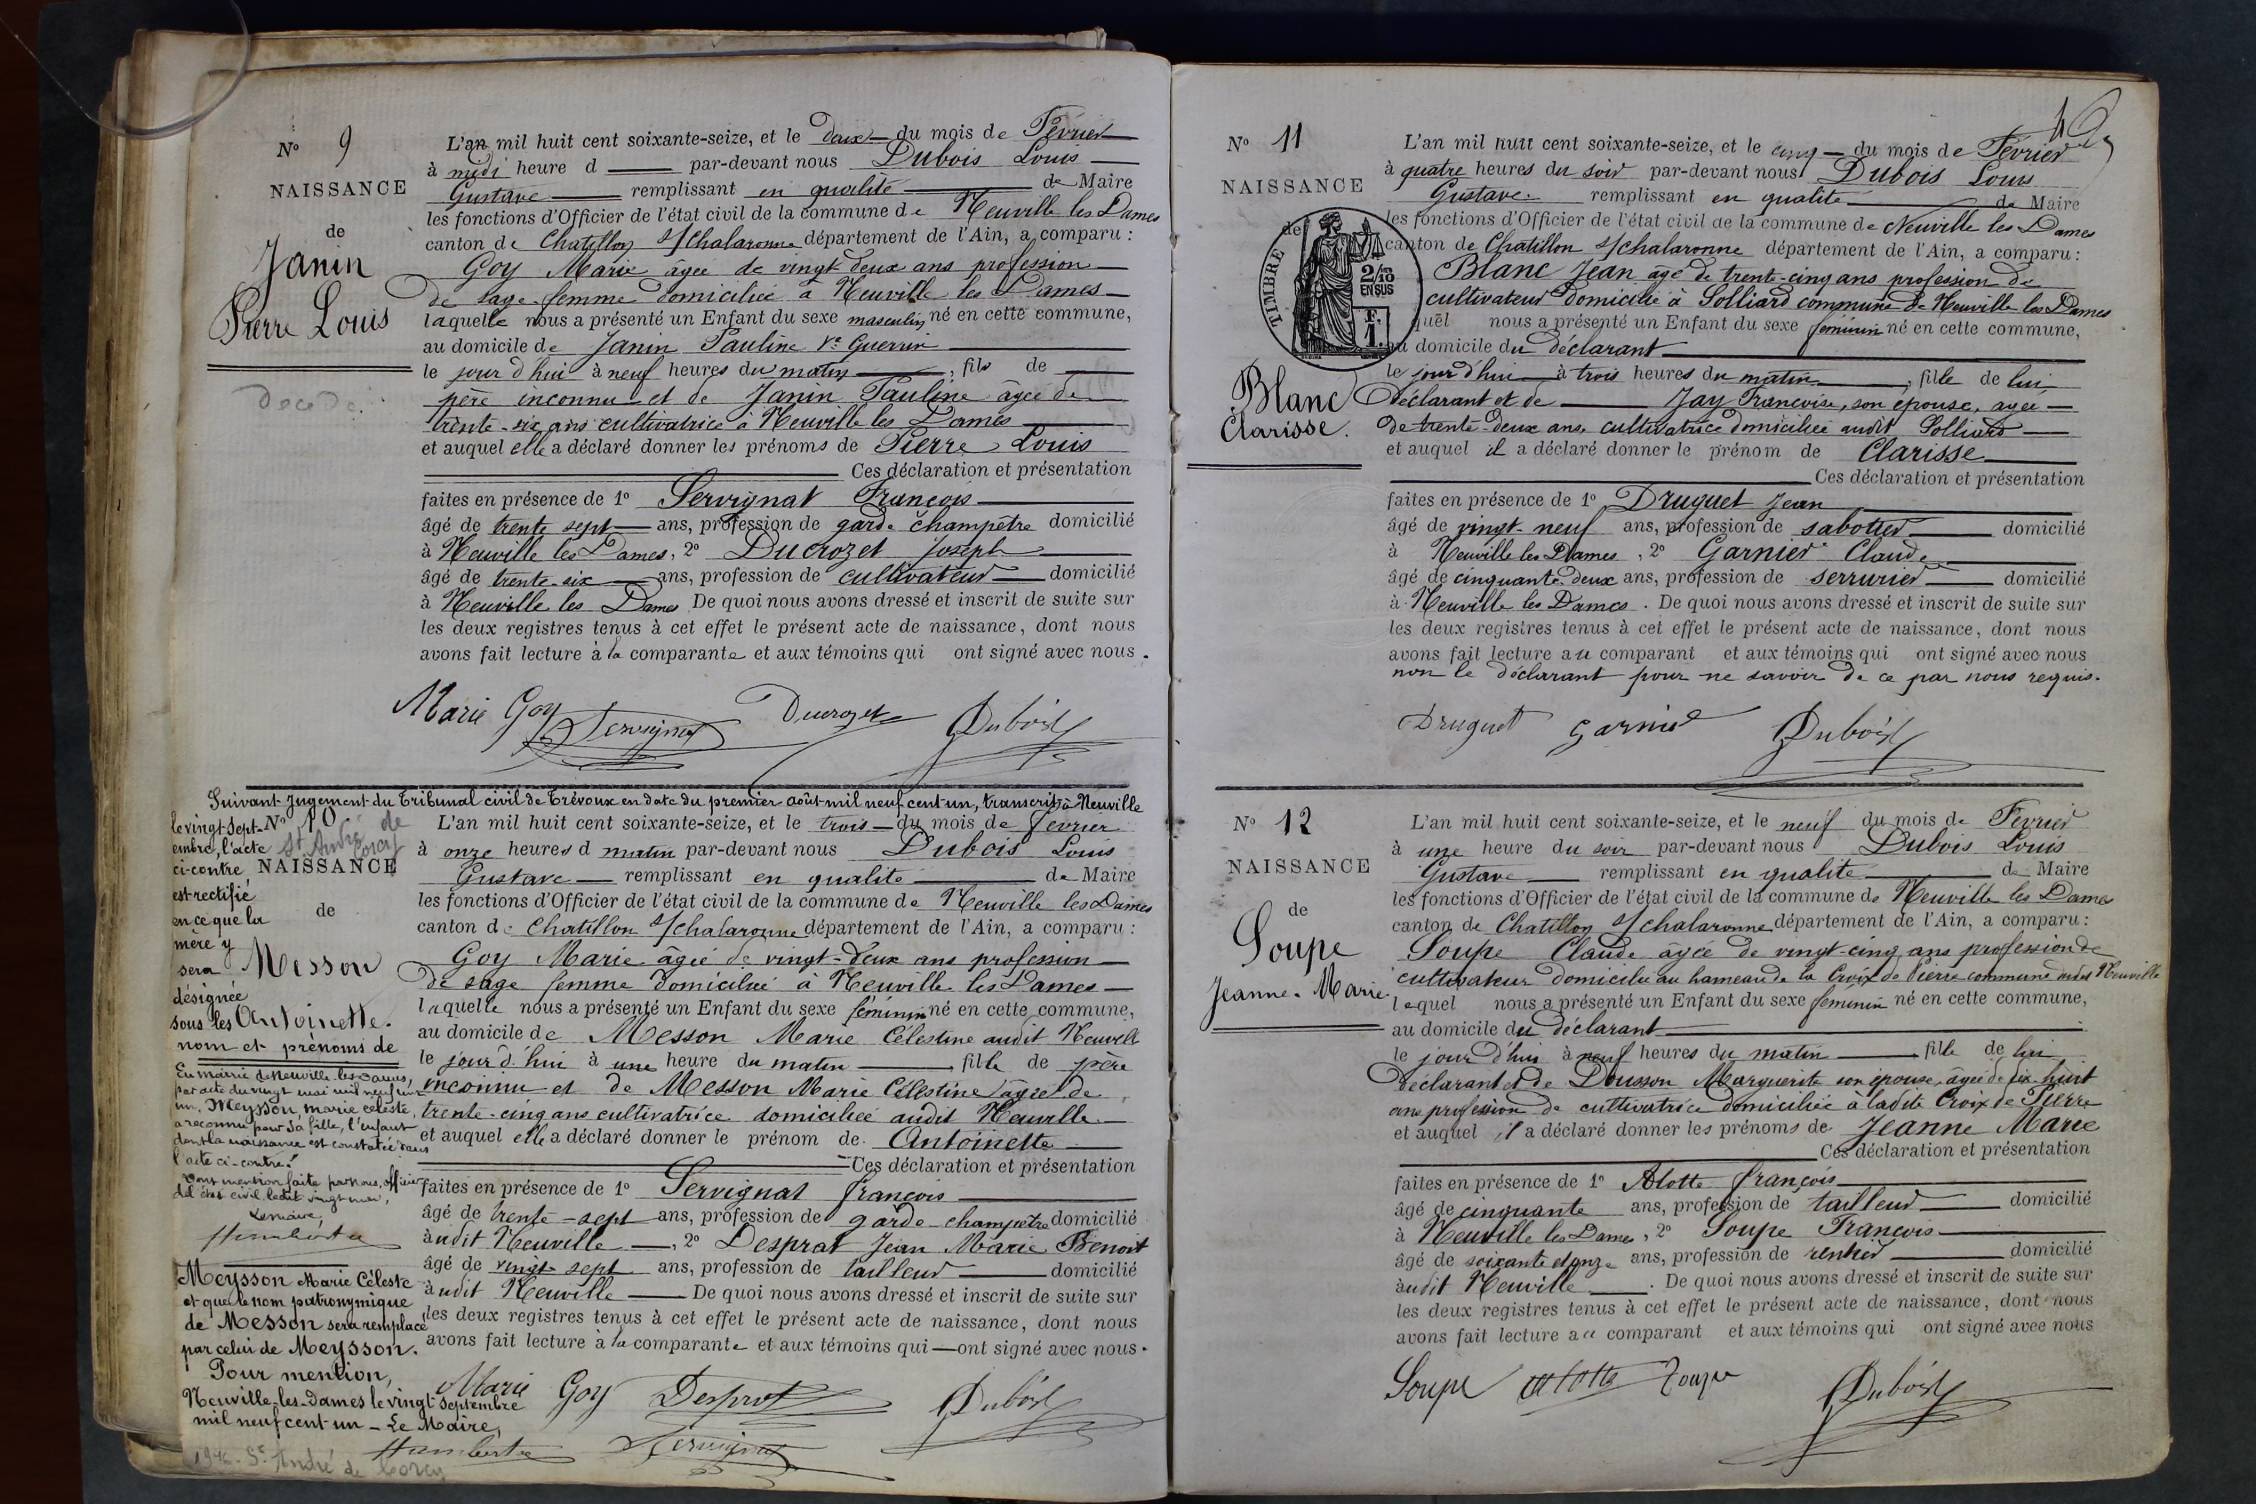 N° 9
NAISSANCE
de
Janin
Pierre Louis
Décédé
L'an mil huit cent soixante-seize, et le deux du mois de Février
à midi heure d par-devant nous Dubois Louis
Gustave remplissant en qualité de Maire
les fonctions d'Officier de l'état civil de la commune de Neuville les Dames
canton de Chatillon s/chalaronne département de l'Ain, a comparu :
Goy Marie âgée de vingt deux ans profession
de sage-femme domiciliée à Neuville les Dames
laquelle nous a présenté un Enfant du sexe masculin né en cette commune,
au domicile de Janin Pauline Ve Guerrin
le jour d'hui à neuf heures du matin, fils de
père inconnu et de Janin Pauline âgée de
trente-six ans cultivatrice à Neuville les Dames
et auquel elle a déclaré donner les prénoms de Pierre Louis
Ces déclaration et présentation
faites en présence de 1° Servignat François
âgé de trente sept ans, profession de garde champêtre domicilié
à Neuville les Dames, 2° Ducrozet Joseph
âgé de trente-six ans, profession de cultivateur domicilié
à Neuville les Dames De quoi nous avons dressé et inscrit de suite sur
les deux registres tenus à cet effet le présent acte de naissance, dont nous
avons fait lecture à la comparante et aux témoins qui ont signé avec nous.
Marie Goy Servignat Ducrozet Dubois
Suivant jugement du Tribunal civil de Trévoux en date du premier août mil neuf cent un, transcrit à Neuville
le vingt-sept-
embre, l'acte
ci-contre
est rectifié
en ce que la
mère y
sera
désignée
sous les
nom et prénoms de
N° 10
St André de
Corcy
NAISSANCE
de
Messon
Antoinette.
En mairie de Neuville-les-Dames,
par acte du vingt mai mil neuf cent
un, Meysson, marie céleste,
a reconnu pour sa fille, l'enfant
dont la naissance est constatée dans
l'acte ci-contre.
Dont mention faite par nous, officier
de l'état civil ledit vingt mai,
Le maire,
Humbert
Meysson Marie Céleste
et que le nom patronymique
de Messon sera remplacé
par celui de Meysson.
Pour mention,
Neuville-les-Dames le vingt-septembre
mil neuf cent un - Le Maire,
Humbert
St André de Corcy
L'an mil huit cent soixante-seize, et le trois du mois de février
à onze heures d matin par-devant nous Dubois Louis
Gustave remplissant en qualité de Maire
les fonctions d'Officier de l'état civil de la commune de Neuville les Dames
canton de Chatillon s/chalaronne département de l'Ain, a comparu :
Goy Marie âgée de vingt-deux ans profession
de sage femme domiciliée à Neuville les Dames
laquelle nous a présenté un Enfant du sexe féminin né en cette commune,
au domicile de Messon Marie Célestine audit Neuville
le jour d'hui à une heure du matin fille de père
inconnu et de Messon Marie Célestine âgée de
trente-cinq ans cultivatrice domiciliée audit Neuville
et auquel elle a déclaré donner le prénom de Antoinette
Ces déclaration et présentation
faites en présence de 1° Servignat françois
âgé de trente-sept ans, profession de garde-champêtre domicilié
audit Neuville, 2° Desprat Jean Marie Benoit
âgé de vingt sept ans, profession de tailleur domicilié
audit Neuville De quoi nous avons dressé et inscrit de suite sur
les deux registres tenus à cet effet le présent acte de naissance, dont nous
avons fait lecture à la comparante et aux témoins qui ont signé avec nous.
Marie Goy Desprat Dubois
Servignat
N° 11
NAISSANCE
de
TIMBRE
2/10 EN SUS
f. 1.
Blanc
Clarisse.
L'an mil huit cent soixante-seize, et le cinq du mois de Février
à quatre heures du soir par-devant nous Dubois Louis
Gustave remplissant en qualité de Maire
les fonctions d'Officier de l'état civil de la commune de Neuville les Dames
canton de Chatillon s/chalaronne département de l'Ain, a comparu :
Blanc Jean âgé de trente-cinq ans profession de
cultivateur domicilié à Solliard commune de Neuville les Dames
quel nous a présenté un Enfant du sexe féminin né en cette commune,
au domicile du déclarant
le jourd'hui à trois heures du matin, fille de lui
déclarant et de Jay Francoise, son épouse, agée
de trente-deux ans cultivatrice domiciliée audit Solliard
et auquel il a déclaré donner le prénom de Clarisse
Ces déclaration et présentation
faites en présence de 1° Druguet Jean
âgé de vingt-neuf ans, profession de sabotier domicilié
à Neuville les Dames, 2° Garnier Claude
âgé de cinquante-deux ans, profession de serrurier domicilié
à Neuville les Dames. De quoi nous avons dressé et inscrit de suite sur
les deux registres tenus à cet effet le présent acte de naissance, dont nous
avons fait lecture au comparant et aux témoins qui ont signé avec nous
non le déclarant pour ne savoir de ce par nous requis.
Druguet Garnier Dubois
N° 12
NAISSANCE
de
Soupe
Jeanne-Marie
L'an mil huit cent soixante-seize, et le neuf du mois de Février
à une heure du soir par-devant nous Dubois Louis
Gustave remplissant en qualité de Maire
les fonctions d'Officier de l'état civil de la commune de Neuville les Dames
canton de Chatillon s/chalaronne département de l'Ain, a comparu :
Soupe Claude âgée de vingt-cinq ans profession de
cultivateur domicilié au hameau de la Croix de Pierre commune dudit Neuville
lequel nous a présenté un Enfant du sexe féminin né en cette commune,
au domicile du déclarant
le jour d'hui à neuf heures du matin fille de lui
déclarant et de Dousson Marguerite son épouse, âgée de dix huit
ans profession de cultivatrice domiciliée à ladite Croix de Pierre
et auquel il a déclaré donner les prénoms de Jeanne Marie
Ces déclaration et présentation
faites en présence de 1° Alotte françois
âgé de cinquante ans, profession de tailleur domicilié
à Neuville les Dames, 2° Soupe Francois
âgé de soixante et onze ans, profession de rentier domicilié
audit Neuville. De quoi nous avons dressé et inscrit de suite sur
les deux registres tenus à cet effet le présent acte de naissance, dont nous
avons fait lecture au comparant et aux témoins qui ont signé avec nous
Soupe Alotte Soupe Dubois